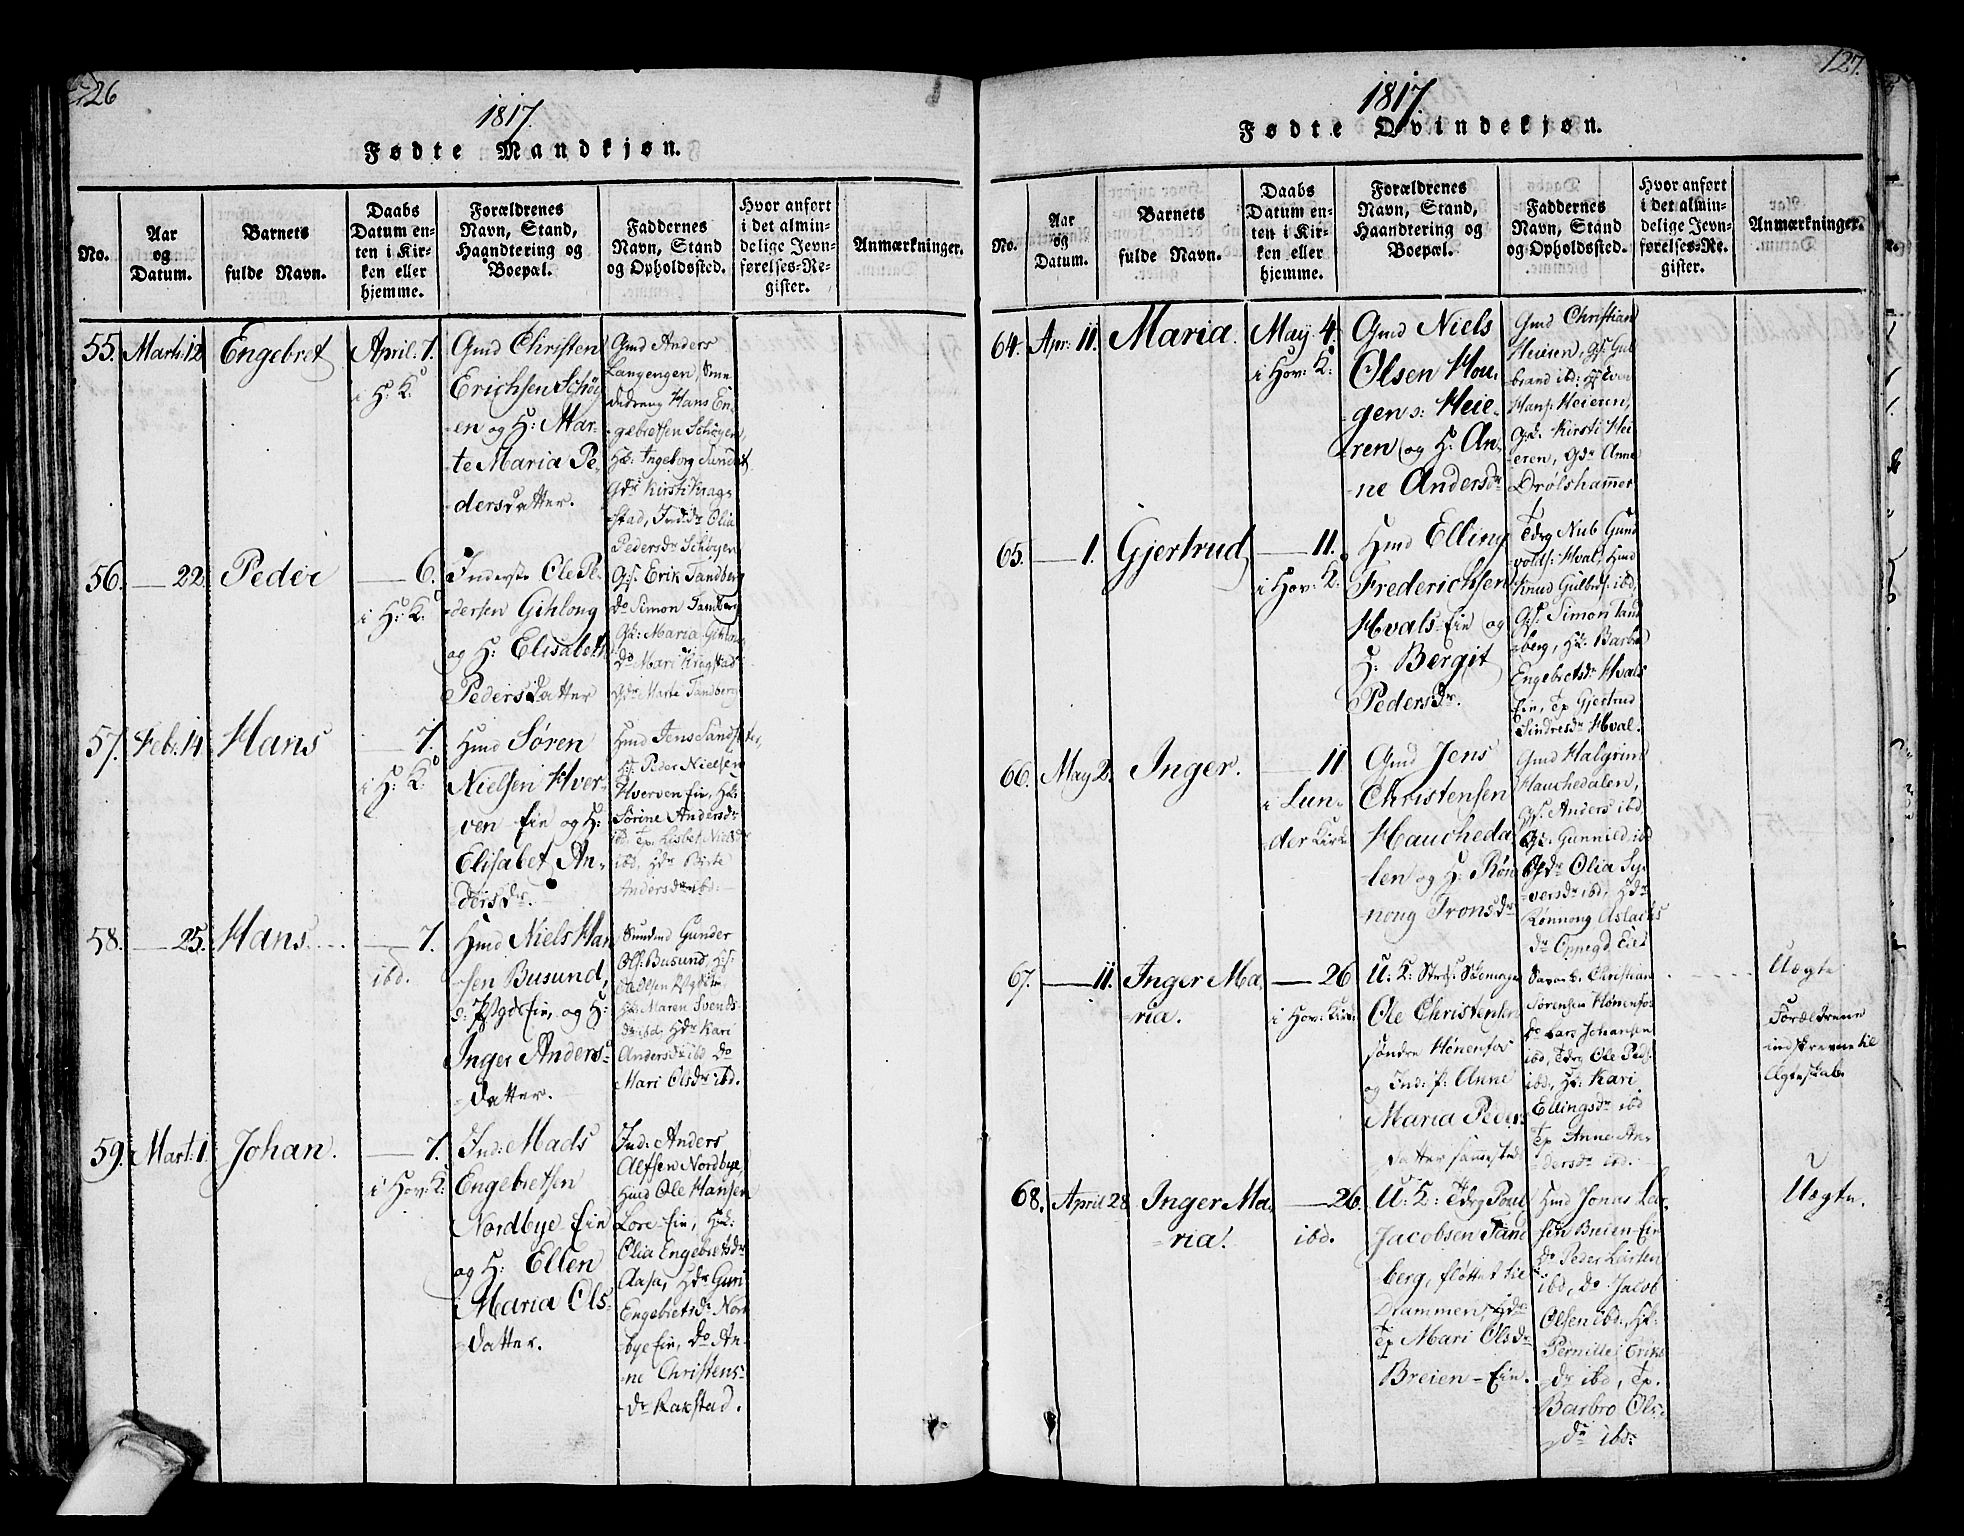 126
1817.
Fødte Mandkjøn.
No.
Aar
og
Datum.
Barnets
fulde Navn.
Daabs
Datum en-
ten i Kir-
ken eller
hjemme.
Forældrenes
Navn, Stand,
Haandtering og
Boepæl.
Faddernes
Navn, Stand
og Opholdssted.
Hvor anført
i det almin-
delige Jevn-
førelses-Re-
gister.
Anmærkninger.
55. Marti 12 Engebret
April. 7.
i H: K:
Gmd Christen
Erichsen Schöy
en og H: Mar-
te Maria Pe-
dersdatter.
Gmd Anders
Langengen,
dedreng Hans En-
gebretsen Schöyen,
Hk: Ingeborg
Gdr Kirsti Krag-
stad, Ind:dr Olia
Pedersdr Schöyen
56. — 22. Peder
— 6.
i H: K:
Inderste Ole Pe-
dersen Gihlong
og H: Elisabeth
Pedersdatter
Gs. Erik Tandberg
do Simon Tandberg
Gk: Maria Gihlong
do Mari Kragstad
Gdr Marte Tandberg
57. Febr. 14 Hans
— 7.
i H: K:
Hmd Søren
Nielsen Hver-
ven Eie og H:
Elisabet An-
dersdr.
Hmd Jens
Hs: Peder Nielsen
Hverven Eie, Hk:
Sörine Andersdr
ibd, Tp. Lisbet Nielsdr
ibd, Hdr Birte
Andersdr ibd:
58. — 25. Hans.
— 7.
ibd.
Hmd Niels Han
sen Busund,
Eie, og H:
Inger Anders-
datter.
Gunder
Ols: Busund, Hs:
Hk: Maren Svends-
dr ibd, Hdr Kari
Andersdr ibd do
Mari Olsdr ibd.
59. Mart: 1. Johan.
— 7.
i Hov: K:
Ind: Mads
Engebretsen
Nordbye-Eie
og H: Ellen
Maria Ols-
datter.
Ind: Anders
Alfsen Nordbye,
Hmd Ole Hansen
Lore-Eie, Hk:
Olia Engebretsdr
Aasa, Hdr Guri
Engebretsdr Nord
bye Eie, do An-
ne Christens-
dr Rakstad.
127.
1817.
Fødte Qvindekjøn.
No.
Aar
og
Datum.
Barnets
fulde Navn.
Daabs
Datum en-
ten i Kir-
ken eller
hjemme.
Forældrenes
Navn, Stand,
Haandtering og
Boepæl.
Faddernes
Navn, Stand
og Opholdssted.
Hvor anført
i det almin-
delige Jevn-
førelses-Re-
gister.
Anmærkninger.
64. Apr: 11. Maria.
May. 4.
i Hov: K:
Gmd Niels
Olsen Hou-
gen s: Heie-
ren og H: An-
ne Andersdr
Gmd Christian
Heieren, Gs: Gul
brand ibd:
Hans: Heieren,
Gk. Kirsti Hei-
eren, Gdr Anne
Drölshammer
65. — 1. Gjertrud
— 11.
i Hov: K:
Hmd Elling
Frederichsen
Hvals-Eie og
H: Bergit
Pedersdr.
Tdrg Nub Gund
volds: Hval, Hmd
Knud Gulbrs: ibd,
Gs: Simon Tand
berg, Hk: Barbro
Engebretsdr Hvals
Eie, Tp Gjertrud
Sindresdr Hval.
66. May 2. Inger.
— 11
i Lun-
der Kirke
Gmd Jens
Christensen
Haucheda
len og H: Rön
nong Tronsdr
Gmd Halgrim
Hauchedalen,
Gs. Anders ibd,
Gk: Gunnild ibd
Gdr Olia Sy-
versdr ibd, Hdr
Rönnong Aslachs
dr Oppegd Eie
67. — 11. Inger Ma-
ria.
— 26
i Hov: Kirke
U: K:
Ole Christensen
søndre Hönenfos
og Ind: p: Anne
Maria Peders
datter sammested
Christian
Sörensen Hönenfos
do Lars Johansen
ibd, Tdrg Ole Peds:
ibd, Hk: Kari
Ellingsdr ibd
Tp Anne An-
dersdr ibd.
Uægte
Forældrene
indskrevne til
Ægteskab.
68. April 28 Inger Ma-
ria.
— 26.
ibd.
U: K: Tdrg Poul
Jacobsen Tand
berg, flöttet til
Drammen,
Tp Mari Olsdr
Breien-Eie.
Hmd Jonas Lar-
sen Breien-Eie
do Peder Larsen
ibd, do Jacob
Olsen ibd, Hk:
Pernille Eriks
dr ibd, Tp.
Barbro Ols-
dr ibd:
Uægte.